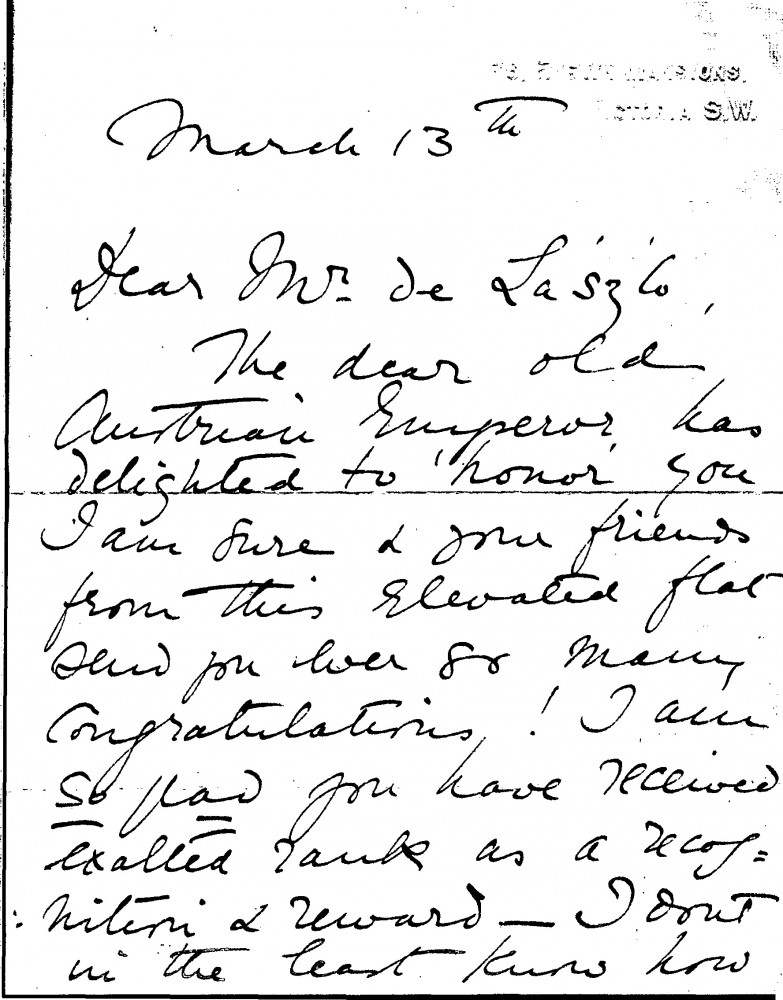 MANSIONS,
S.W.
March 13th
Dear Mr. de László,
The dear old
Austrian Emperor has
delighted to 'honor' you
I am sure & your friends
from this elevated flat
send you ever so many
Congratulations! I am
so glad you have received
exalted rank as a recog=
nition & reward — I don't
in the least know how